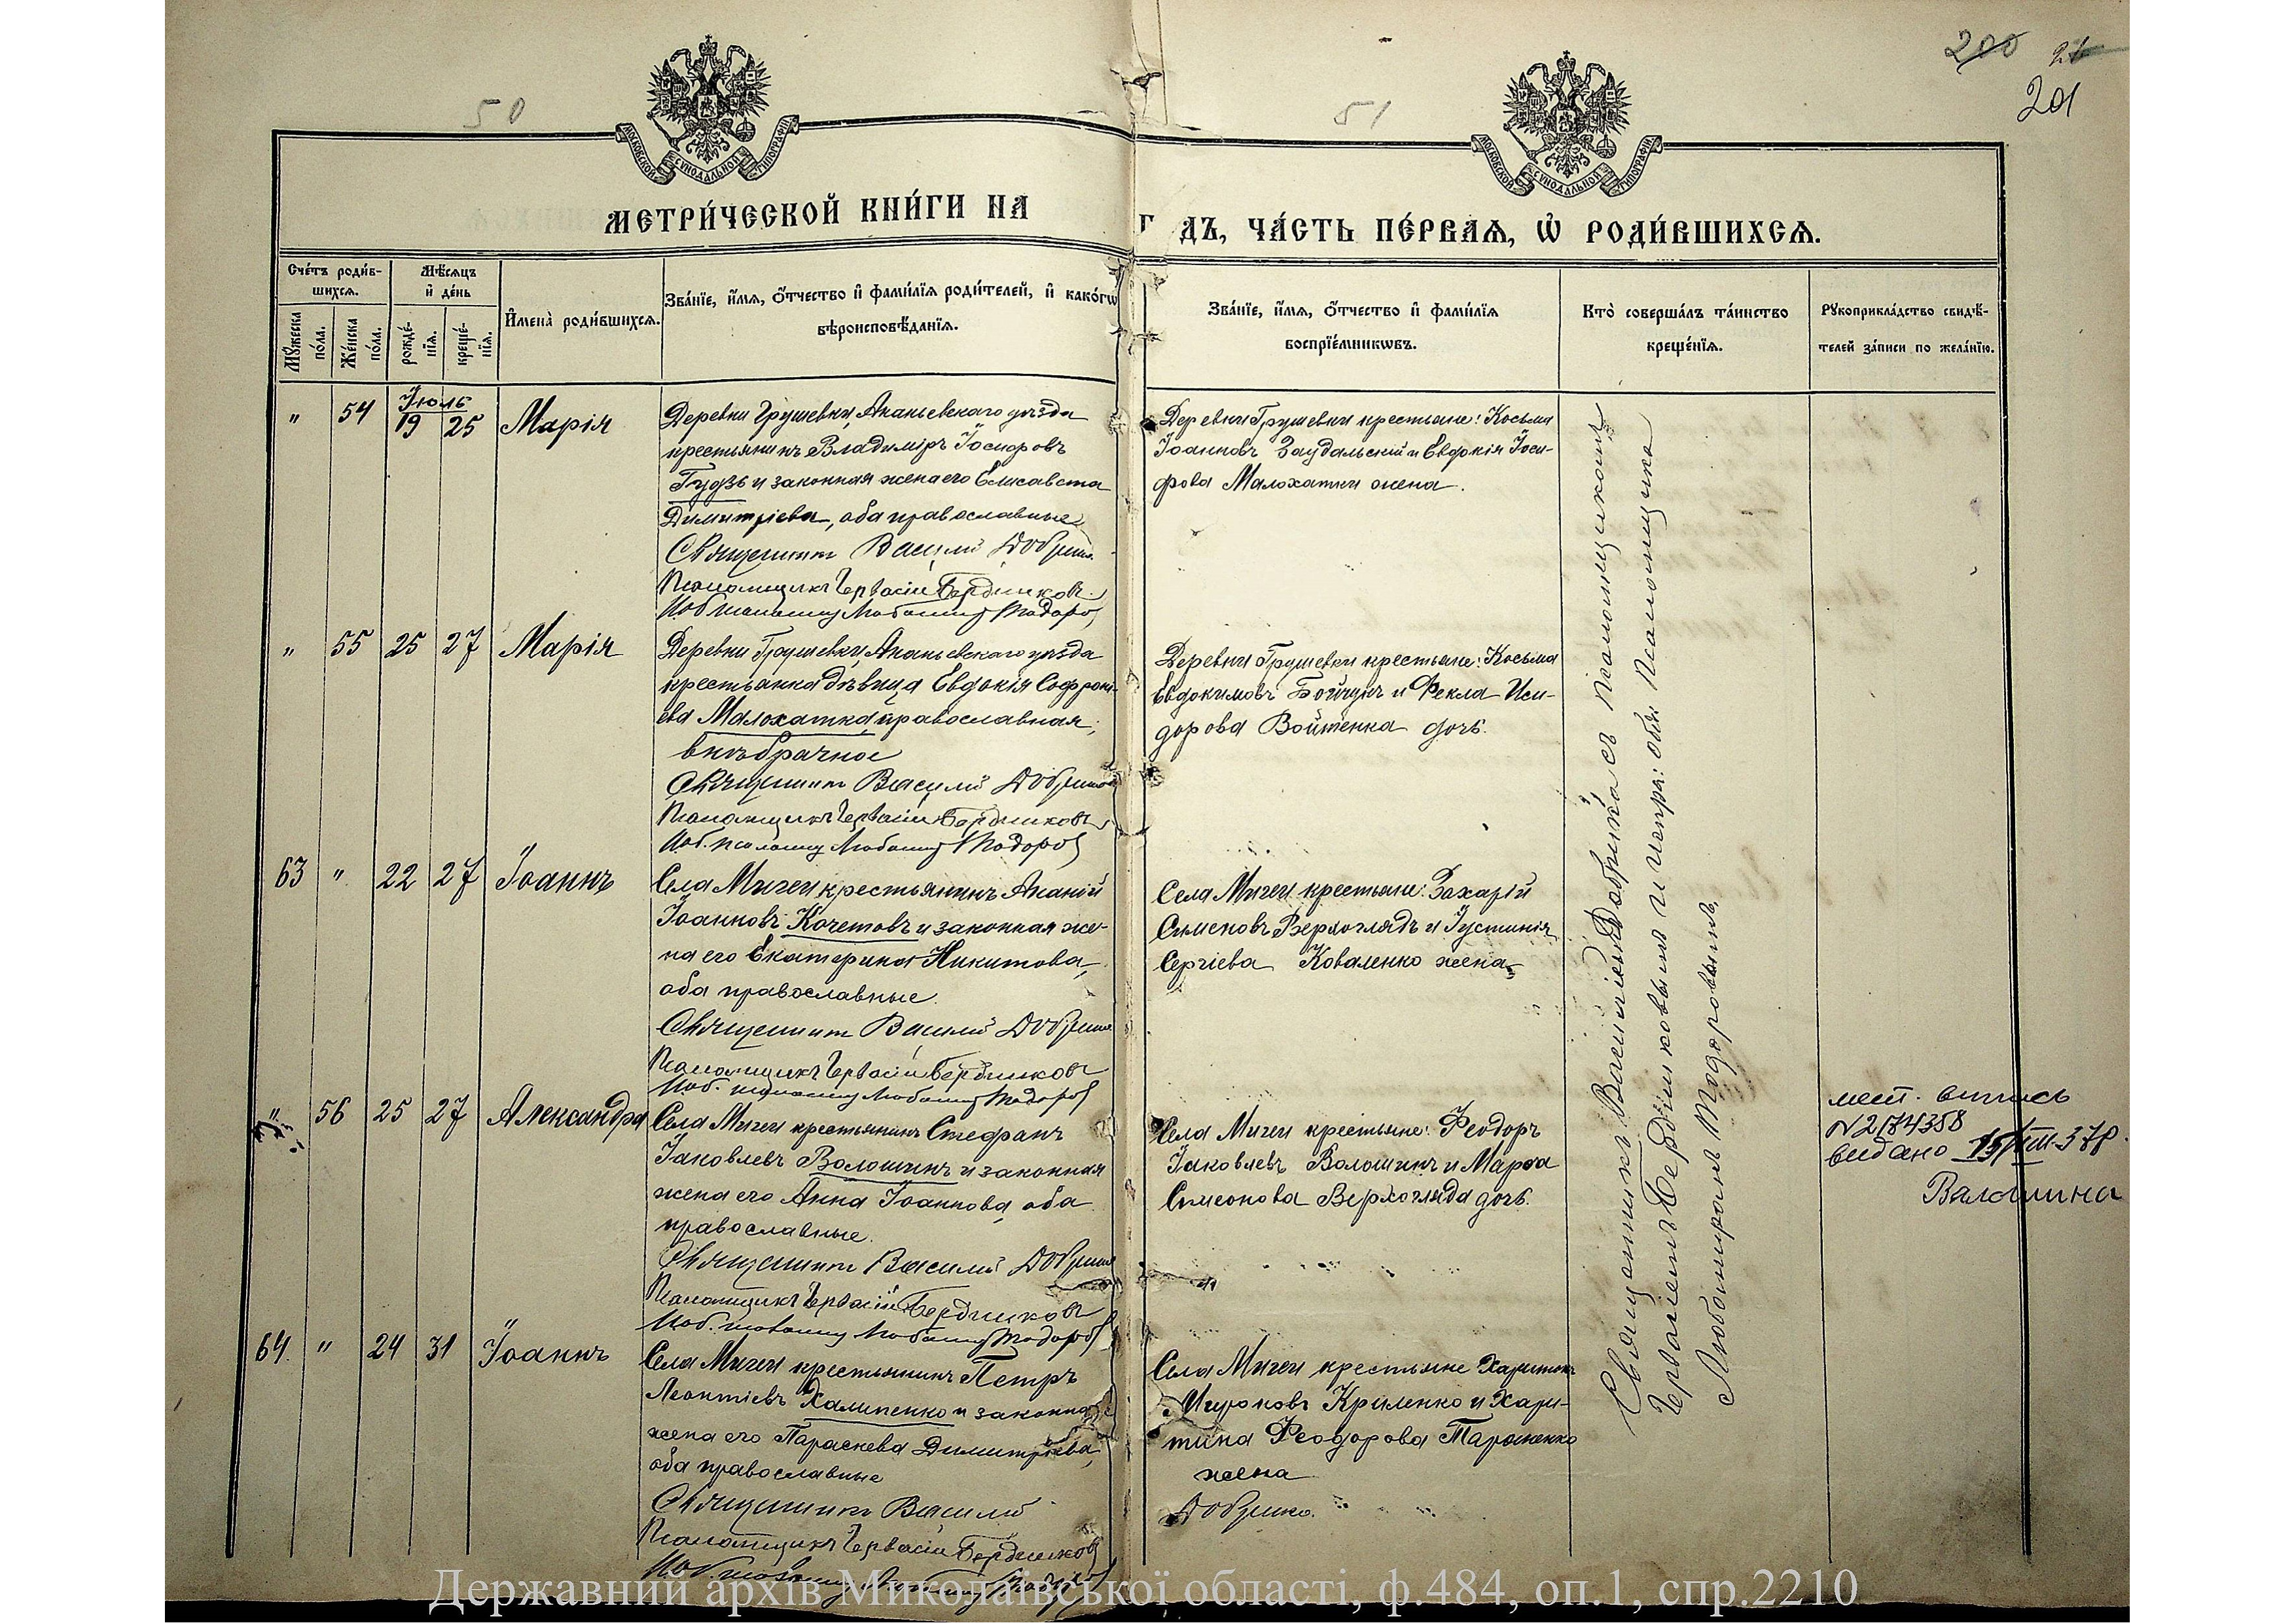 200 21
201
50
51
МОСКОВСКОЙ СѴНОДАЛЬНОЙ ТИПОГРАФІИ
МОСКОВСКОЙ СѴНОДАЛЬНОЙ ТИПОГРАФІИ
МЕТРИ́ЧЕСКОЙ КНИ́ГИ НА Г ДЪ, ЧА́СТЬ ПЕ́РВАЯ, Ѡ҆ РОДИ́ВШИХСЯ.
Сче́тъ роди́в-
шихся.
Мꙋ́жеска по́ла.
Же́нска по́ла.
Мѣ́сяцъ
и҆ де́нь
рожде́-
нїя.
креще́-
нїя.
И҆мена̀ роди́вшихся.
Зва́нїе, и҆́мя, ѻ҆́тчество и҆ фами́лїя роди́телей, и҆ како́гѡ
вѣроисповѣ́данїя.
Зва́нїе, и҆́мя, ѻ҆́тчество и҆ фами́лїя
воспрїе́мникѡвъ.
Кто̀ соверша́лъ та́инство
креще́нїя.
Рꙋкоприкла́дство свидѣ́-
телей за́писи по жела́нїю.
" 54 Іюль 19 25 Марія
Деревни Грушевки, Ананьевскаго уѣзда
крестьянинъ Владиміръ Іосифовъ
Гудзь и законная жена его Елисавета
Димитріева, оба православные
Священникъ Василій Добрина
Псаломщикъ Гервасій Бердниковъ
И.об. псаломщ Любомир Тодоров
Деревни Грушевки крестьяне: Косьма
Іоанновъ Заудальскій и Евдокія Іоси-
фова Малохатки жена.
" 55 25 27 Марія
Деревни Грушевки, Ананьевскаго уѣзда
крестьянка дѣвица Евдокія Софрон-
ева Малохатка, православная;
внѣбрачное
Священникъ Василій
Псаломщикъ Гервасій Бердниковъ
И.об. псаломщ Любомир Тодоров
Деревни Грушевки крестьяне: Косьма
Евдокимовъ Бойчукъ и Фекла Иси-
дорова Войтенка дочь.
63 " 22 27 Іоаннъ
Села Мигеи крестьянинъ Ананій
Іоанновъ Кочетовъ и законная же-
на его Екатерина Никитова,
оба православные.
Священникъ Василій
Псаломщикъ Гервасій Бердниковъ
И.об. псаломщ Любомир Тодоров
Села Мигеи крестьяне: Захарій
Сименовъ Верхоглядъ и Іустинія
Сергіева Коваленко жена
" 56 25 27 Александра
Села Мигеи крестьянинъ Стефанъ
Іаковлевъ Волошинъ и законная
жена его Анна Іоаннова, оба
православные.
Священникъ Василій
Псаломщикъ Гервасій Бердниковъ
И.об. псаломщ Любомир Тодоров
Села Мигеи крестьяне: Феодоръ
Іаковлевъ Волошинъ и Марфа
Симеонова Верхогляда дочь.
мет. випись
N 2174358
видано 15/VIII-37р.
Валошина
64. " 24 31 Іоаннъ
Села Мигеи крестьянинъ Петръ
Леонтіевъ Халипенко и законная
жена его Параскева Димитріева,
оба православные
Священникъ Василій
Псаломщикъ Гервасій Бердниковъ
Села Мигеи крестьяне Харитонъ
Мироновъ Криленко и Хари-
тина Феодорова Тараненко
жена
Священникъ Василій с псаломщикомъ
Гервасіемъ Бердниковымъ и исправ: обяз псаломщика
Любомиромъ Тодоровымъ.
Державний архів Миколаївської області, ф.484, оп.1, спр.2210